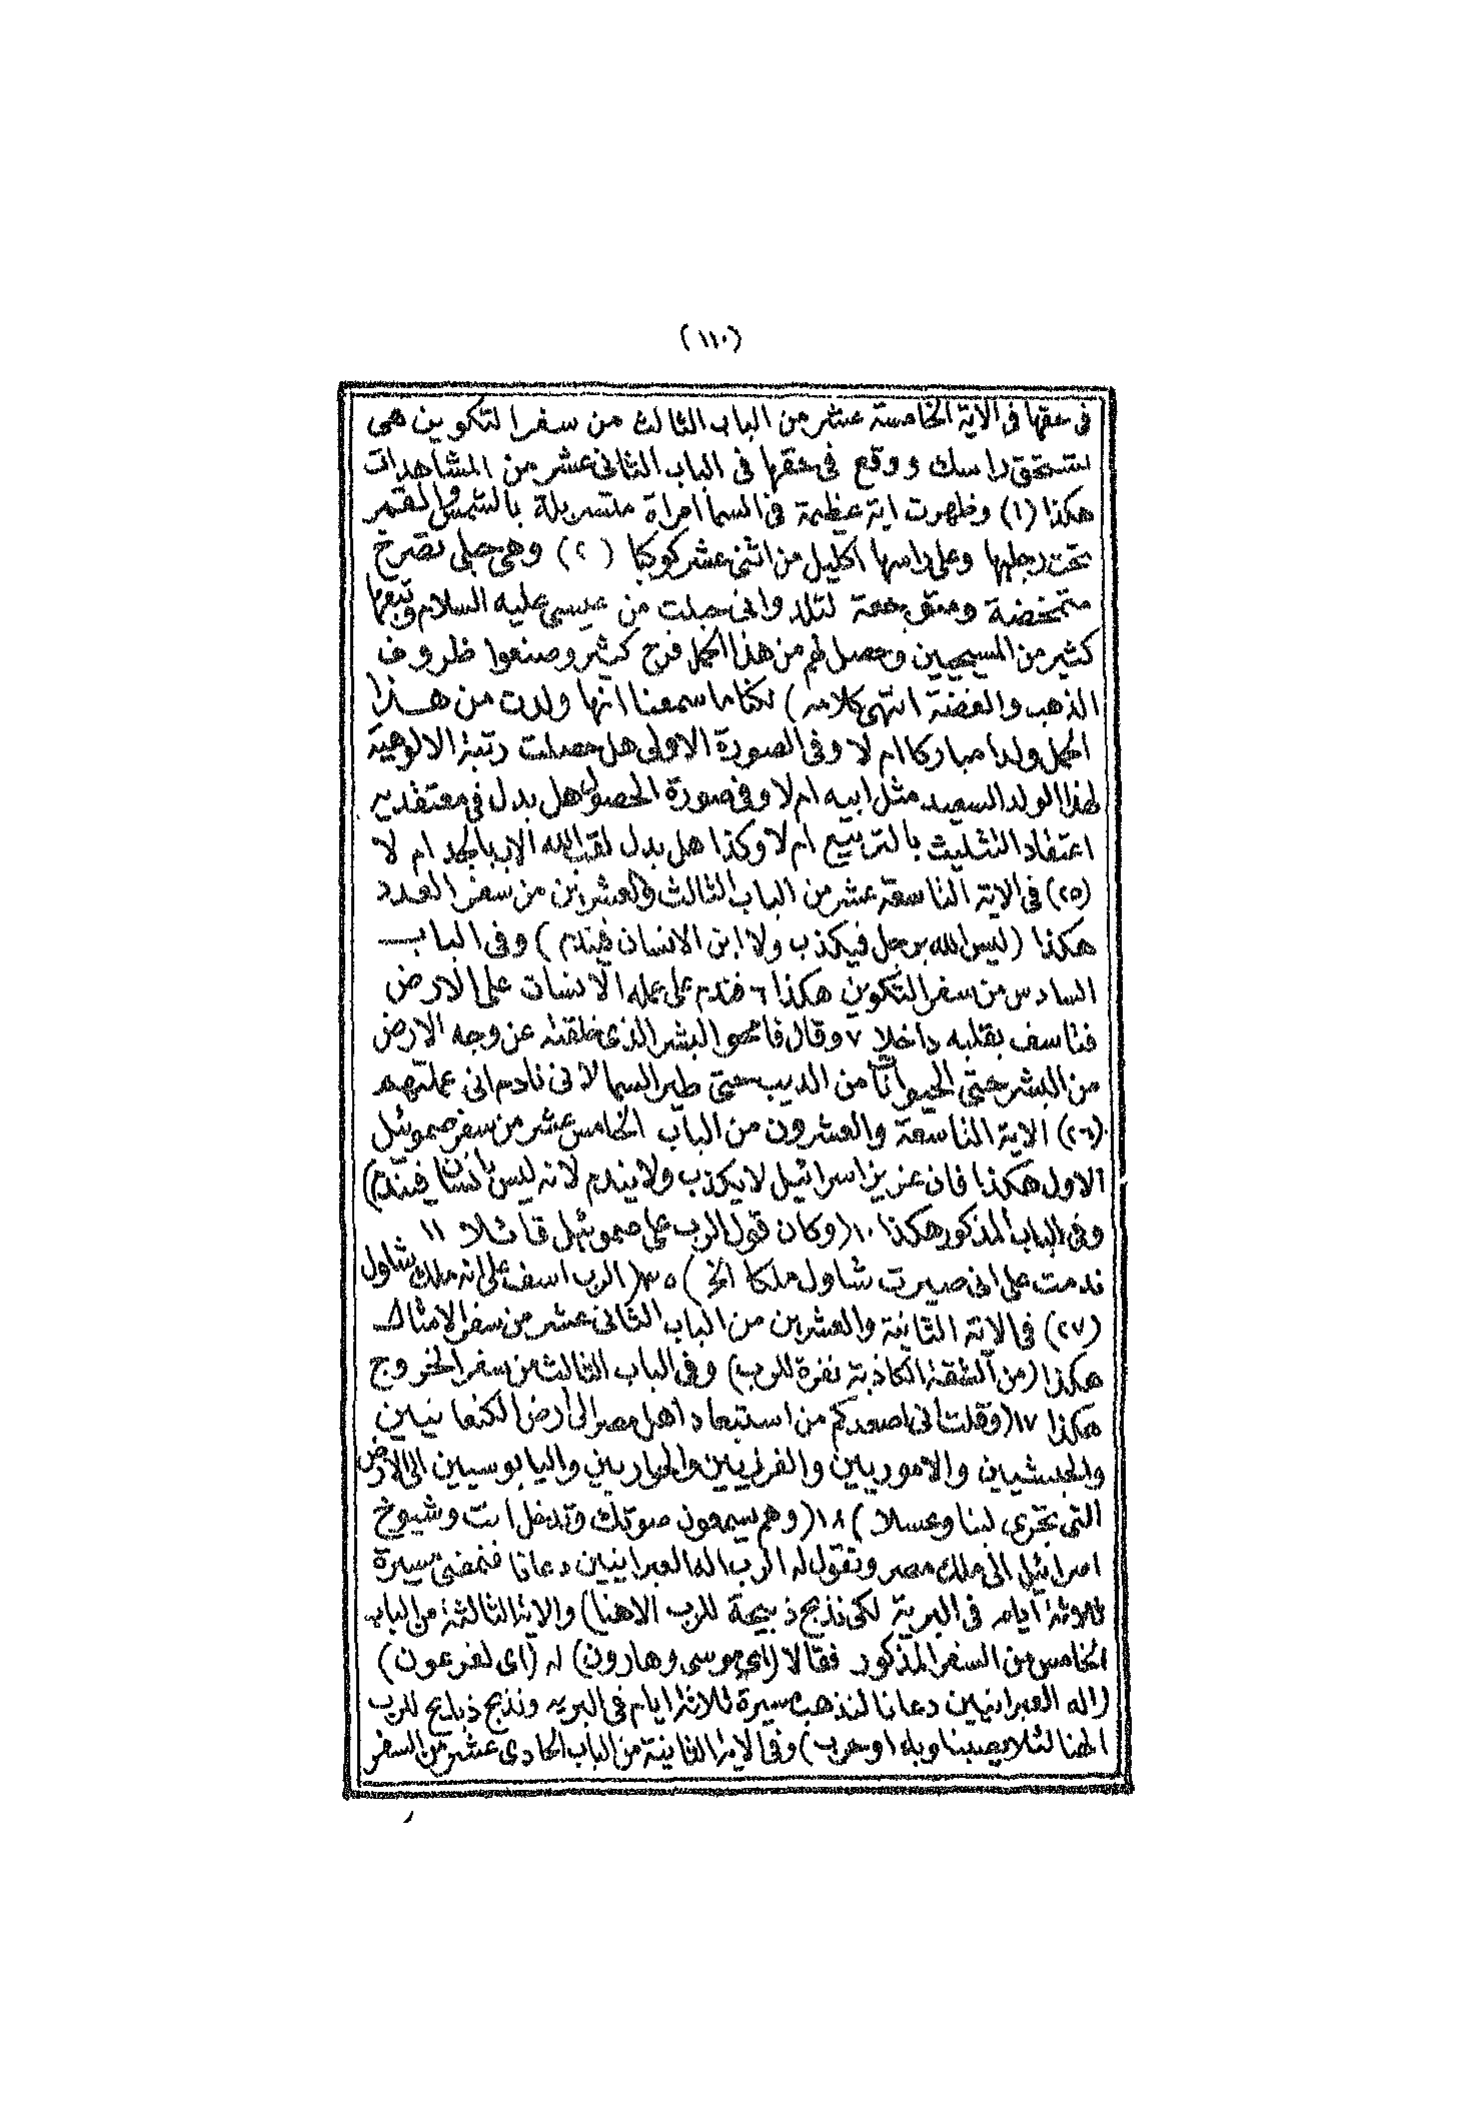 (١١٠)
فى حقها فى الاية الخامسة عشر من الباب الثالث من سفر التكوين هى
تستحق راسك ووقع فى حقها فى الباب الثانى عشر من المشاهدات
هكذا (١) وظهرت اية عظيمة فى السما امراة متسربلة بالشمس والقمر
تحت رجليها وعلى راسها اكليل من اثنى عشر كوكبا (٢) وهى حبلى تصرخ
متمخضة ومتوجعة لتلد وانى حبلت من عيسى عليه السلام وتبعها
كثير من المسيحيين وحصل لهم من هذا الحمل فرح كثير وصنعوا ظروف
الذهب والفضة انتهى كلامه) لكنا ما سمعنا انها ولدت من هذا
الحمل ولدا مباركا ام لا وفى الصورة الاولى هل حصلت رتبة الالوهية
لهذا الولد السعيد مثل ابيه ام لا وفى صورة الحصول هل بدل فى معتقديه
اعتقاد التثليث بالتربيع ام لا وكذا هل بدل لقب الله الاب بالجد ام لا
(٢٥) فى الاية التاسعة عشر من الباب الثالث والعشرين من سفر العدد
هكذا (ليس الله برجل فيكذب ولا ابن الانسان فيندم) وفى الباب
السادس من سفر التكوين هكذا ٦ فندم على عمله الانسان على الارض
فتاسف بقلبه داخلا ٧ وقال فامحو البشر الذى خلقته عن وجه الارض
من البشر حتى الحيوانات من الدبيب حتى طير السما لانى نادم انى عملتهم
(٢٦) الاية التاسعة والعشرون من الباب الخامس عشر من سفر صموئيل
الاول هكذا فان عزيز اسرائيل لا يكذب ولا يندم لانه ليس بانسان فيندم)
وفى الباب المذكور هكذا ١٠ (وكان قول الرب على صموئيل قائلا ١١
ندمت على انى صيرت شاول ملكا الخ) ٣٥ (الرب اسف على انه ملك شاول
(٢٧) فى الاية الثانية والعشرين من الباب الثانى عشر من سفر الامثال
هكذا (من الشفة الكاذبة نفرة للرب) وفى الباب الثالث من سفر الخروج
هكذا ١٧ (وقلت انى اصعدكم من استبعاد اهل مصر الى ارض الكنعانيين
والحيثيين والاموريين والفرزيين والحواريين واليابوسيين الى الارض
التى تجرى لبنا وعسلا) ١٨ (وهم يسمعون صوتك وتدخل انت وشيوخ
اسرائيل الى ملك مصر وتقول له الرب اله العبرانيين دعانا فنمضى مسيرة
ثلاثة ايام فى البرية لكى نذبح ذبيحة للرب الاهنا) والاية الثالثة من الباب
الخامس من السفر المذكور فقالا (اى موسى وهارون) له (اى لفرعون)
(اله العبرانيين دعانا لنذهب مسيرة ثلاثة ايام فى البريه ونذبح ذبايح للرب
الهنا لئلا يصيبنا وبا او حرب) وفى الاية الثانية من الباب الحادى عشر من السفر